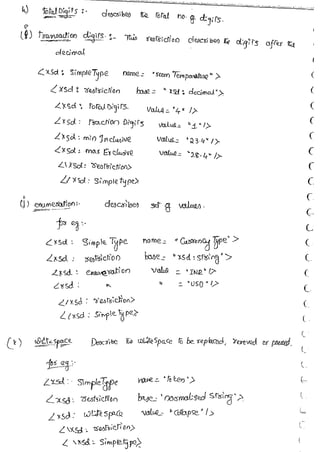 h) Total Digits :- describes the total no. of digits.
(i) fraction digits :- This restriction describes the digits after the
decimal
<xsd : SimpleType name = "room Temperature">
<xsd : restriction base = "xsd : decimal">
<xsd : Total Digits. value = "4" />
<xsd : fraction Digits value = "1" />
<xsd : min Inclusive value = "23.4" />
<xsd : max Exclusive value = "28.4" />
</xsd : restriction>
</xsd : Simple Type>
(j) enumeration :- describes set of values.
for eg :-
<xsd : Simple Type name = "Currency Type">
<xsd : restriction base = "xsd : string">
<xsd : enumeration value = "INR" />
<xsd : " " = "USD" />
</xsd : restriction>
</xsd : Simple Type>
(k) white space Describe the white space to be replaced, removed or
for eg :-
<xsd : Simple Type name = >
<xsd : restriction base = "normalised String">
<xsd : white space value = "Collapse" />
<\xsd : restriction>
<\xsd : Simple Type>